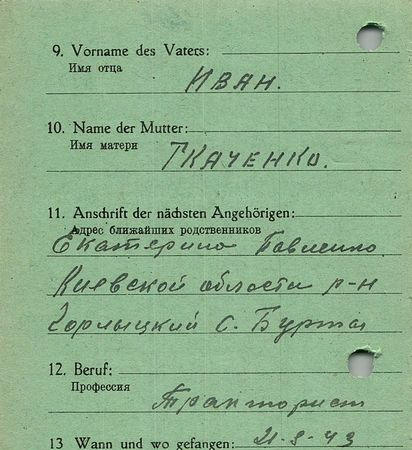 9. Vorname des Vaters:
Имя отца
ИВАН.
10. Name der Mutter:
Имя матери
ТКАЧЕНКО.
11. Anschrift der nächsten Angehörigen:
Адрес ближайших родственников
Екатерина Павленко
Киевской области р-н
с. Бурта
12. Beruf:
Профессия
Тракторист
13 Wann und wo gefangen: